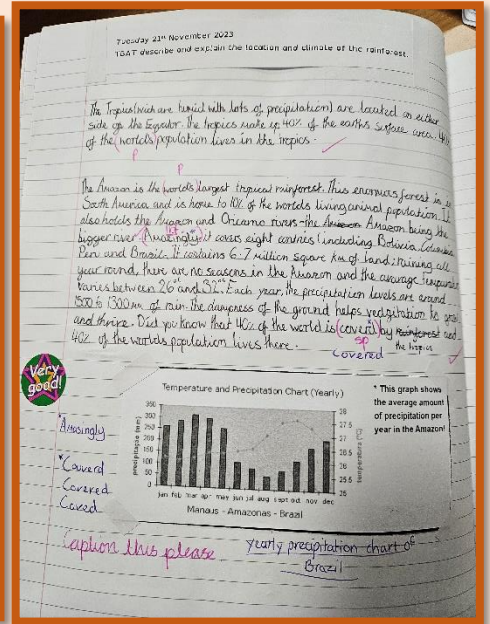 Tuesday 21st November 2023
TGAT describe and explain the location and climate of the rainforest.
The Tropics (wich are humid with lots of precipitation) are located on either
side of the Equator. The tropics make up 40% of the earths surface area. 40%
of the (world's) population lives in the tropics.
P
P
The Amazon is the (world's) largest tropical rainforest. This enormus forest is in
South America and is home to 10% of the worlds living animal population. It
also holds the Amazon and rivers - the Amazon being the
bigger river. (Amazingly) it covers eight contries (including Bolivia,
Peru and Brazil. It contains 6.7 million square km of land; raining all
year round, there are no seasons in the Amazon and the average
varies between 26° and 32°. Each year, the precipitation levels are around
1500 to 1300 of rain. the dampness of the ground helps to
and thrive. Did you know that 40% of the world is (coverd) by and
sp
the tropics
40% of the worlds population lives there.
Covered
Very good!
*Amasingly
*Couverd
Covered
Coved
Temperature and Precipitation Chart (Yearly)
precipitation (mm)
350
300
250
200
150
100
50
0
28
27.5
27
26.5
26
25.5
25
temperature (°C)
jan feb mar apr may jun jul aug sept oct nov dec
Manaus - Amazonas - Brazil
* This graph shows
the average amount
of precipitation per
year in the Amazon!
Caption this please
yearly precipitation chart of
Brazil